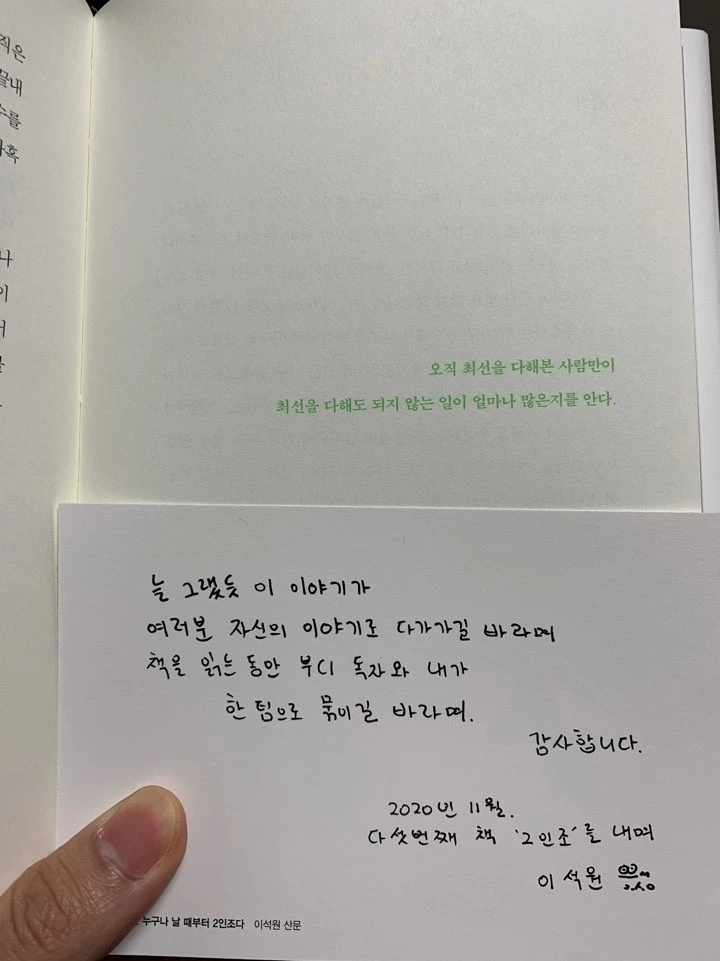 직은
끝내
수를
나
이
오직 최선을 다해본 사람만이
최선을 다해도 되지 않는 일이 얼마나 많은지를 안다.
늘 그랬듯 이 이야기가
여러분 자신의 이야기로 다가가길 바라며
책을 읽는 동안 부디 독자와 내가
한 팀으로 묶이길 바라며.
감사합니다.
2020년 11월.
다섯번째 책 '2인조'를 내며
이석원
누구나 날 때부터 2인조다 이석원 산문